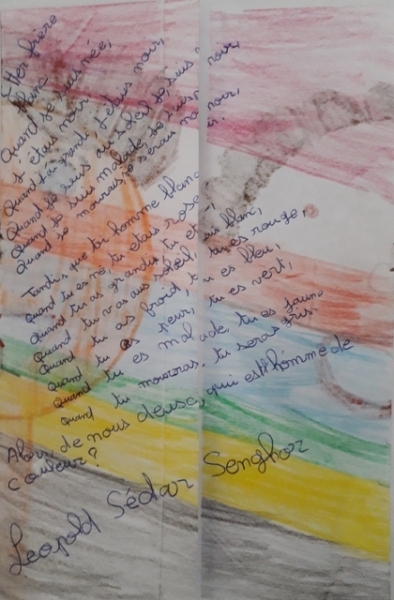 Cher frère
blanc
Quand je suis née,
j'étais noir,
Quand j'ai grandi, j'étais noir,
Quand je suis au soleil je suis noir,
Quand je suis malade je suis noir,
Quand je mourrais je serai noir.
Tandis que toi homme blanc,
Quand tu es né, tu étais rose,
Quand tu as grandi, tu étais blanc,
Quand tu vas au soleil, tu es rouge,
Quand tu as froid, tu es bleu,
Quand tu as peur, tu es vert,
Quand tu es malade, tu es jaune
Quand tu mourras, tu seras gris.
Alors, de nous deux, qui est l'homme de
couleur?
Leopold Sédar Senghor